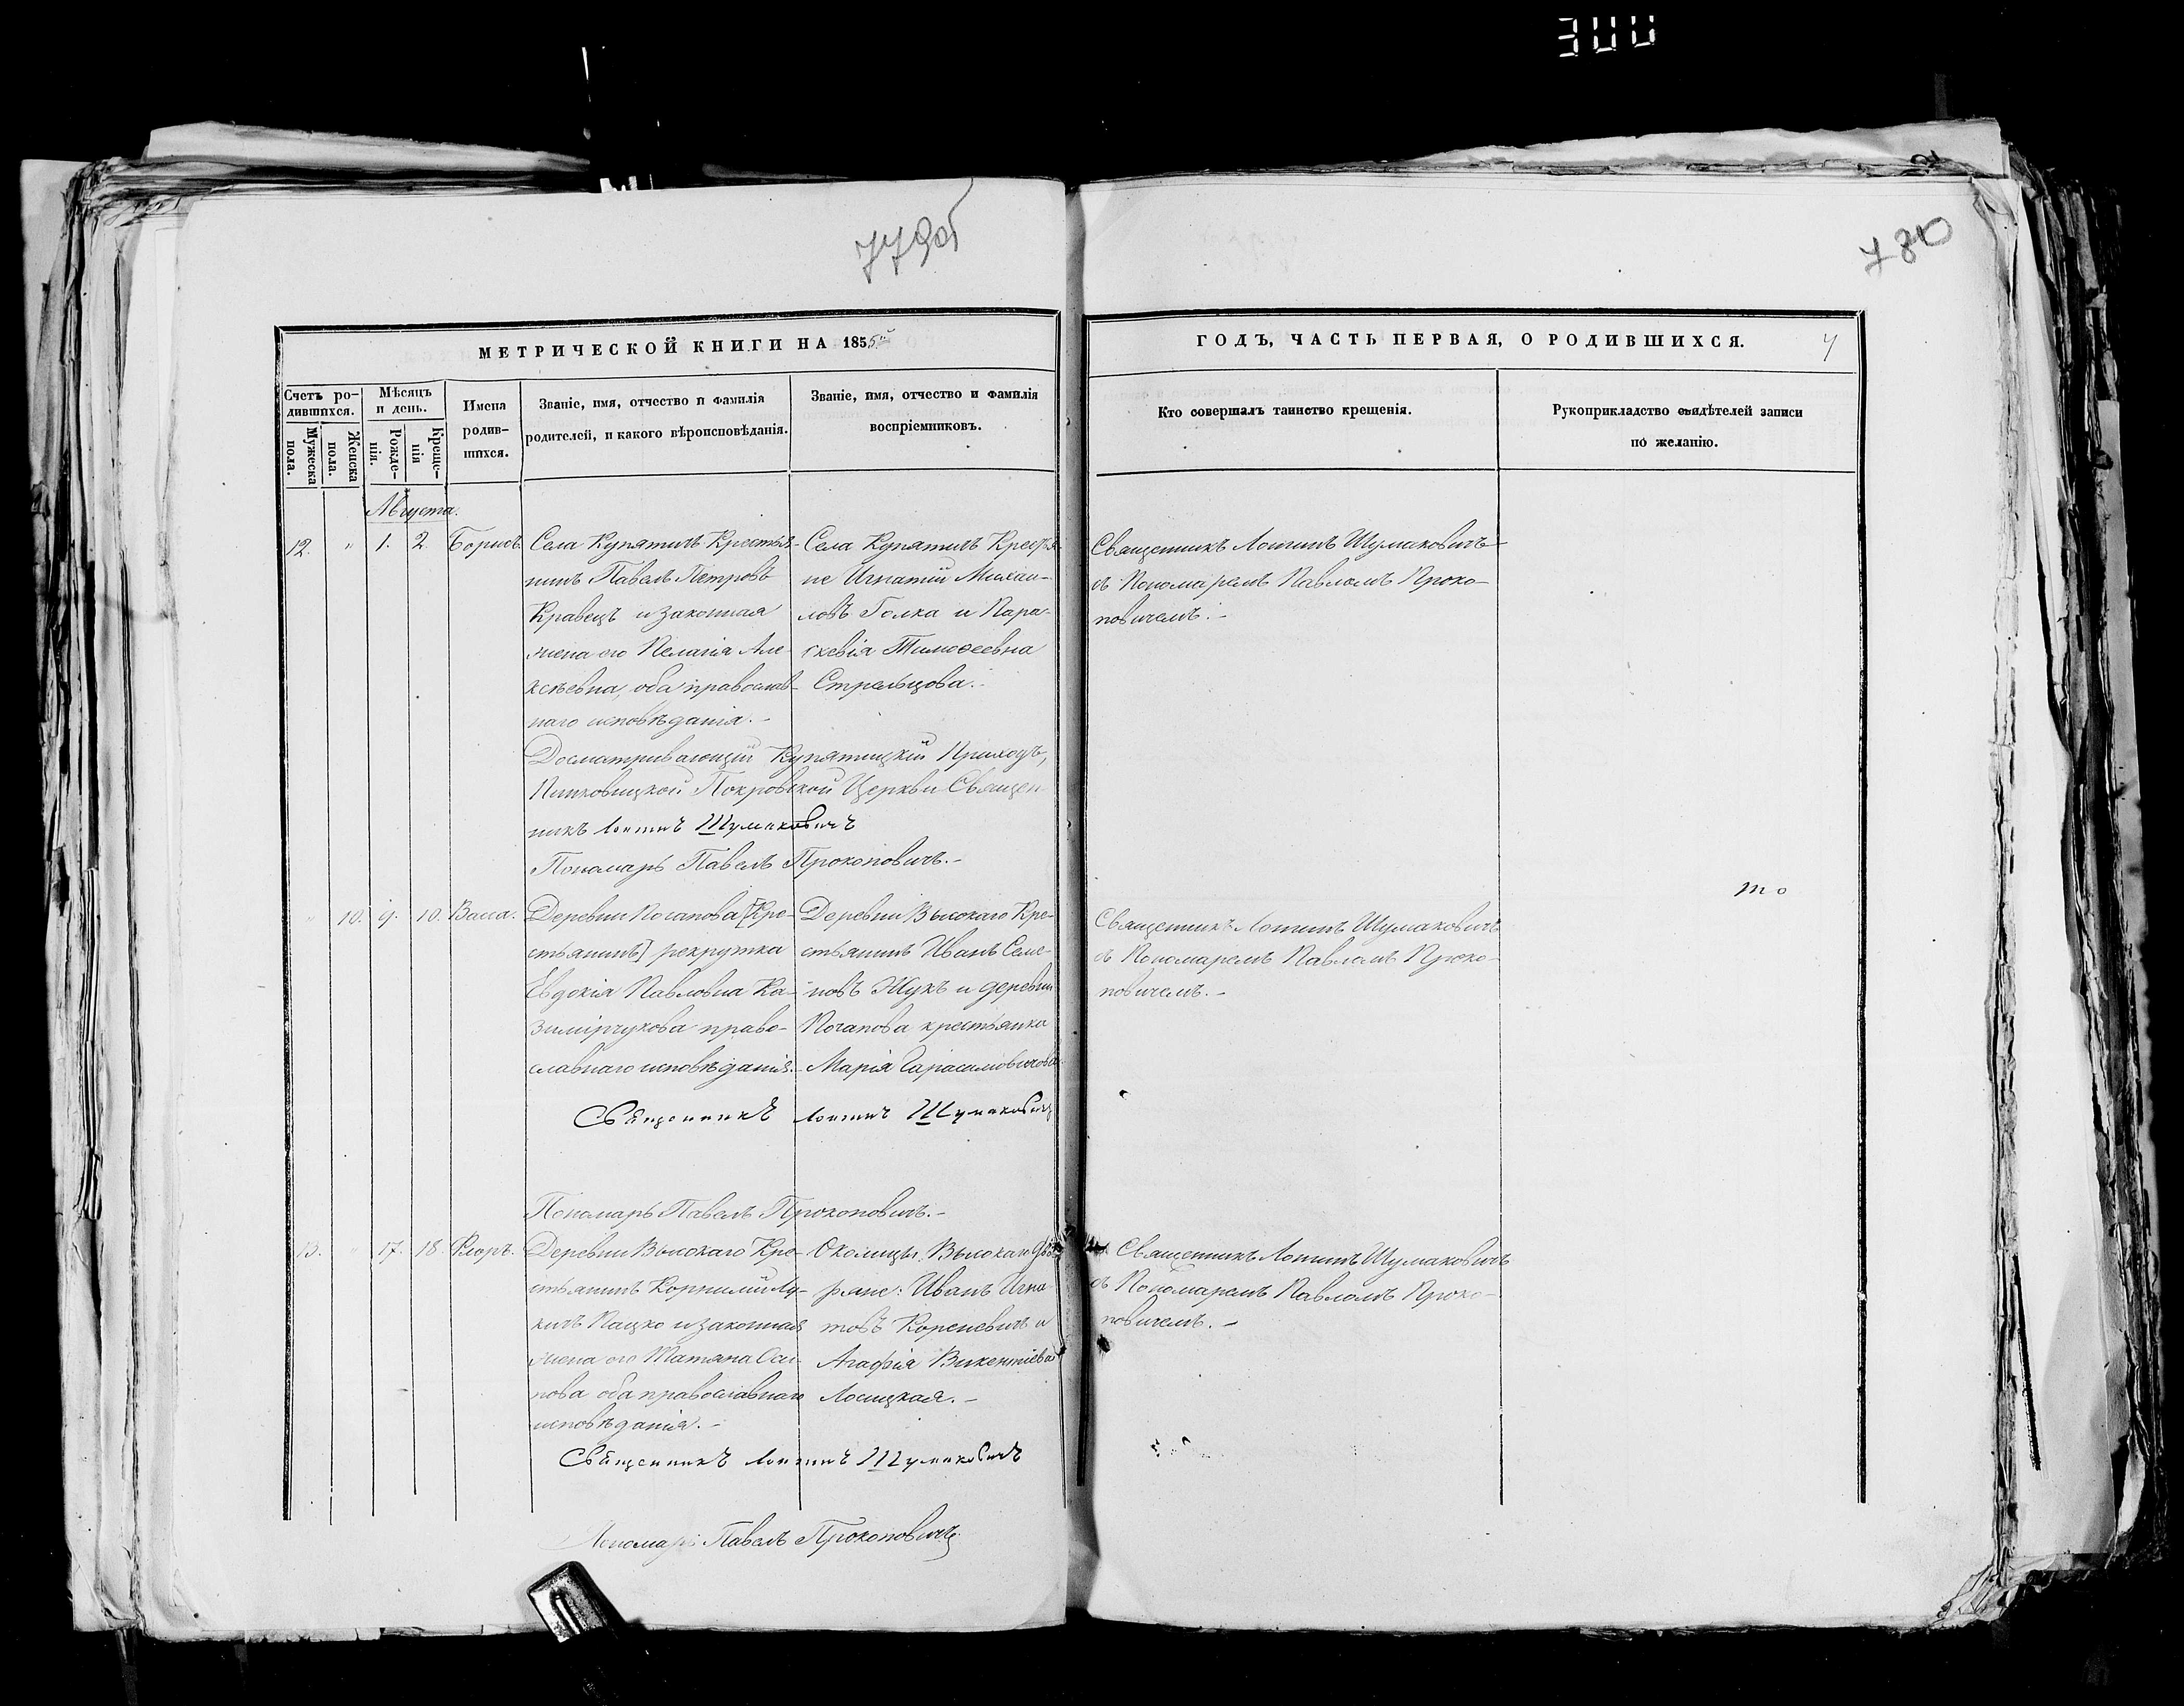 300
779об
780
МЕТРИЧЕСКОЙ КНИГИ НА 1855й
ГОДЪ, ЧАСТЬ ПЕРВАЯ, О РОДИВШИХСЯ.
Счетъ ро-
дившихся.
Мѣсяцъ
и день.
Имена
родив-
шихся.
Званіе, имя, отчество и фамилія
родителей, и какого вѣроисповѣданія.
Званіе, имя, отчество и фамилія
воспріемниковъ.
Мужеска
пола.
Женска
пола.
Рожде-
нія.
Креще-
нія
Кто совершалъ таинство крещенія.
Рукоприкладство свидѣтелей записи
по желанію.
Августа.
12. " 1. 2. Борисъ.
Села Купятичъ Крестья-
нинъ Павелъ Петровъ
Кравецъ и законная
жена его Пелагія Але-
ксѣевна, оба православ-
наго исповѣданія.-
Села Купятичъ Крестья-
не Игнатій Михаи-
ловъ Голка и Пара-
скевія Тимоѳеевна
Стрельцова.-
Священникъ Логинъ Шумаковичъ
съ Пономаремъ Павломъ Проко-
повичемъ.-
Досматривающій Купятицкій Приходъ,
Пинковицкой Покровской Церкви Священ-
никъ Логинъ Шумаковичъ
Пономарь Павелъ Прокоповичъ.-
" 10. 9. 10. Васса.
Деревни Почапова [Кре-
стьянинъ] рекрутка
Евдокія Павловна Ка-
зимірчукова право-
славнаго исповѣданія.-
Деревни Высокаго Кре-
стьянинъ Иванъ Семе-
новъ Жукъ и деревни
Почапова крестьянка
Марія Гарасимовичова
Священникъ Логинъ Шумаковичъ
съ Пономаремъ Павломъ Проко-
повичемъ.-
Священникъ Логинъ Шумаковичъ
Пономарь Павелъ Прокоповичъ.-
13. " 17. 18. Флоръ.
Деревни Высокаго Кре-
стьянинъ Корнилій Лу-
кичъ Пацко и законная
жена его Татяна Оси-
пова оба православнаго
исповѣданія.-
Околицы Высокаго Дво-
ряне: Иванъ Игна-
товъ Кореневичъ и
Агафія Викентіева
Лосицкая.-
Священникъ Логинъ Шумаковичъ
съ Пономаремъ Павломъ Проко-
повичемъ.-
Священникъ Логинъ Шумаковичъ
Пономарь Павелъ Прокоповичъ